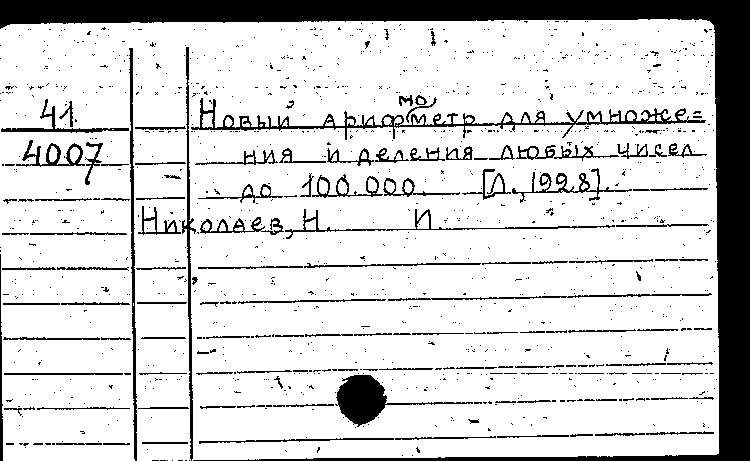 41
4007
Новый арифмометр для умноже=
ния и деления любых чисел
до 100.000. [Л., 1928].
Николаев, Н. И.